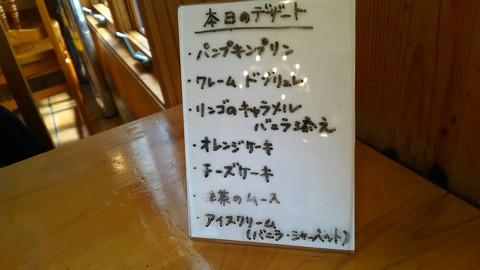 本日のデザート
・パンプキンプリン
・クレーム ドブリュレ
・リンゴのキャラメル
バニラ添え
・オレンジケーキ
・チーズケーキ
・茶のムース
・アイスクリーム
(バニラ・シャーベット)